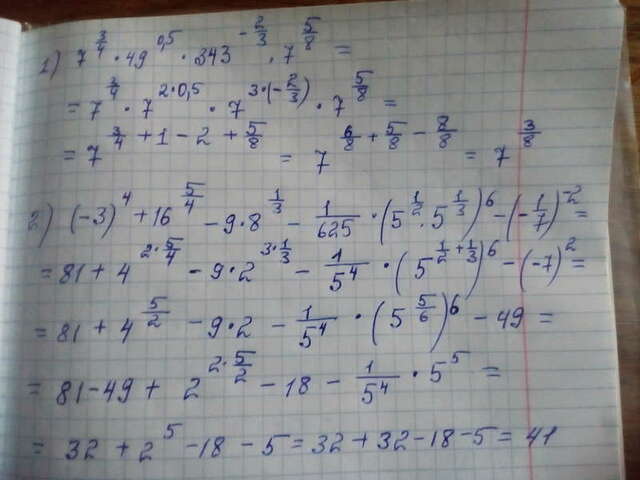 1) 7^(3/4) · 49^(0,5) · 343^(-2/3) · 7^(5/8) =
= 7^(3/4) · 7^(2·0,5) · 7^(3·(-2/3)) · 7^(5/8) =
= 7^(3/4 + 1 - 2 + 5/8) = 7^(6/8 + 5/8 - 8/8) = 7^(3/8)
2) (-3)^4 + 16^(5/4) - 9·8^(1/3) - 1/625 · (5^(1/2) · 5^(1/3))^6 - (-1/7)^(-2) =
= 81 + 4^(2·5/4) - 9·2^(3·1/3) - 1/5^4 · (5^(1/2+1/3))^6 - (-7)^2 =
= 81 + 4^(5/2) - 9·2 - 1/5^4 · (5^(5/6))^6 - 49 =
= 81-49 + 2^(2·5/2) - 18 - 1/5^4 · 5^5 =
= 32 + 2^5 - 18 - 5 = 32 + 32 - 18 - 5 = 41